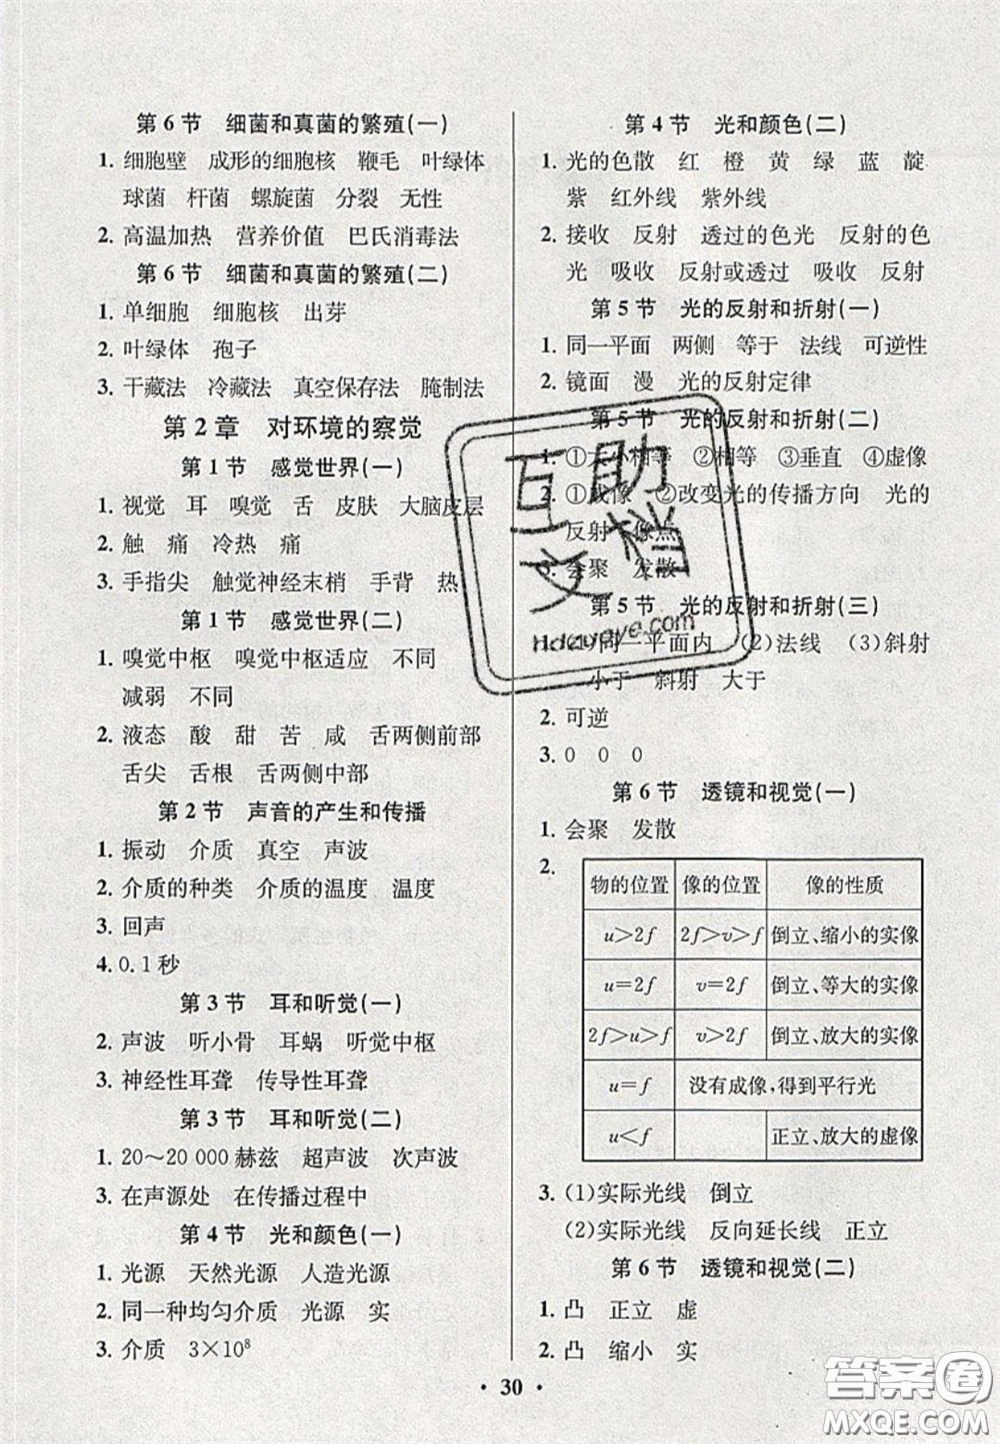 第6节 细菌和真菌的繁殖(一)
1. 细胞壁 成形的细胞核 鞭毛 叶绿体
球菌 杆菌 螺旋菌 分裂 无性
2. 高温加热 营养价值 巴氏消毒法
第6节 细菌和真菌的繁殖(二)
1. 单细胞 细胞核 出芽
2. 叶绿体 孢子
3. 干藏法 冷藏法 真空保存法 腌制法
第2章 对环境的察觉
第1节 感觉世界(一)
1. 视觉 耳 嗅觉 舌 皮肤 大脑皮层
2. 触 痛 冷热 痛
3. 手指尖 触觉神经末梢 手背 热
第1节 感觉世界(二)
1. 嗅觉中枢 嗅觉中枢适应 不同
减弱 不同
2. 液态 酸 甜 苦 咸 舌两侧前部
舌尖 舌根 舌两侧中部
第2节 声音的产生和传播
1. 振动 介质 真空 声波
2. 介质的种类 介质的温度 温度
3. 回声
4.0.1秒
第3节 耳和听觉(一)
2. 声波 听小骨 耳蜗 听觉中枢
3. 神经性耳聋 传导性耳聋
第3节 耳和听觉(二)
1. 20～20 000赫兹 超声波 次声波
3. 在声源处 在传播过程中
第4节 光和颜色(一)
1. 光源 天然光源 人造光源
2. 同一种均匀介质 光源 实
3. 介质 3×10⁸
第4节 光和颜色(二)
1. 光的色散 红 橙 黄 绿 蓝 靛
紫 红外线 紫外线
2. 接收 反射 透过的色光 反射的色
光 吸收 反射或透过 吸收 反射
第5节 光的反射和折射(一)
1. 同一平面 两侧 等于 法线 可逆性
2. 镜面 漫 光的反射定律
第5节 光的反射和折射(二)
1. ①大小相等 ②相等 ③垂直 ④虚像
2. ①成像 ②改变光的传播方向 光的
反射 像点
3. 会聚 发散
第5节 光的反射和折射(三)
同一平面内 (2)法线 (3)斜射
小于 斜射 大于
2. 可逆
3. 0 0 0
第6节 透镜和视觉(一)
1. 会聚 发散
2.
物的位置 像的位置 像的性质
u>2f 2f>v>f 倒立、缩小的实像
u=2f v=2f 倒立、等大的实像
2f>u>f v>2f 倒立、放大的实像
u=f 没有成像,得到平行光
u<f 正立、放大的虚像
3. (1)实际光线 倒立
(2)实际光线 反向延长线 正立
第6节 透镜和视觉(二)
1. 凸 正立 虚
2. 凸 缩小 实
· 30 ·
互助
文档
Hdzuoye.com
答案圈
MXQE.COM